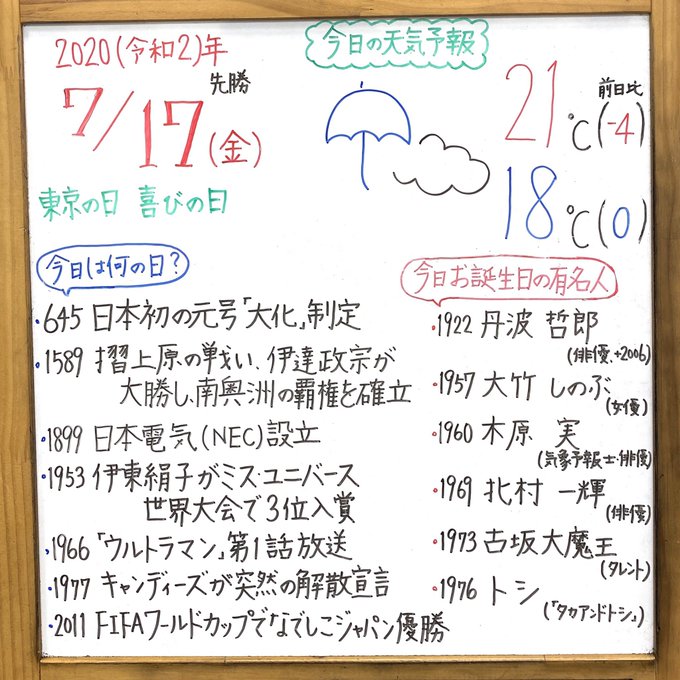 2020(令和2)年
7/17(金)
先勝
東京の日 喜びの日
今日の天気予報
21℃(-4)
前日比
18℃(0)
今日は何の日?
・645 日本初の元号「大化」制定
・1589 摺上原の戦い、伊達政宗が
大勝し、南奥洲の覇権を確立
・1899 日本電気(NEC)設立
・1953 伊東絹子がミス・ユニバース
世界大会で3位入賞
・1966「ウルトラマン」第1話放送
・1977 キャンディーズが突然の解散宣言
・2011 FIFAワールドカップでなでしこジャパン優勝
今日お誕生日の有名人
・1922 丹波 哲郎
(俳優、+2006)
・1957 大竹 しのぶ
(女優)
・1960 木原 実
(気象予報士・俳優)
・1969 北村 一輝
(俳優)
・1973 古坂大魔王
(タレント)
・1976 トシ
(「タカアンドトシ」)